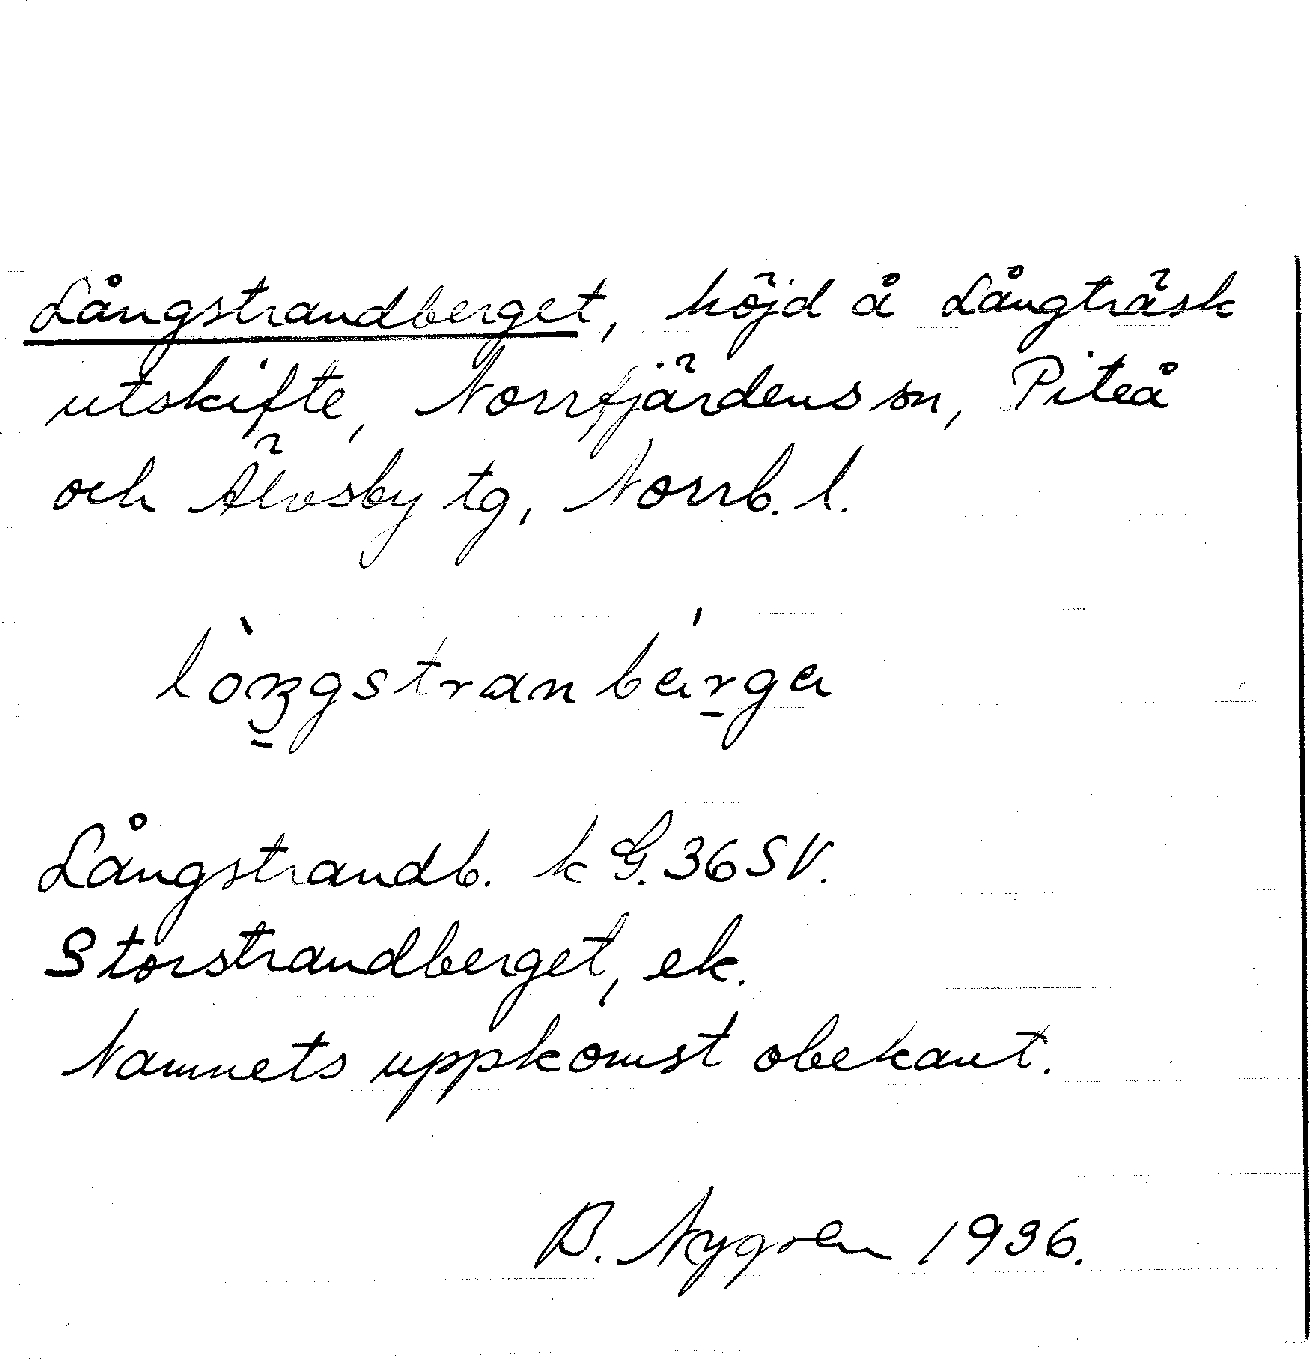 Långstrandberget, höjd å Långträsk
utskifte, Norrfjärdens sn, Piteå
och Älvsby tg, Norrb. l.
lòŋgstranbárga
Långstrandb. k G. 36 SV.
Storstrandberget, ek.
Namnets uppkomst obekant.
B. Nygren 1936.